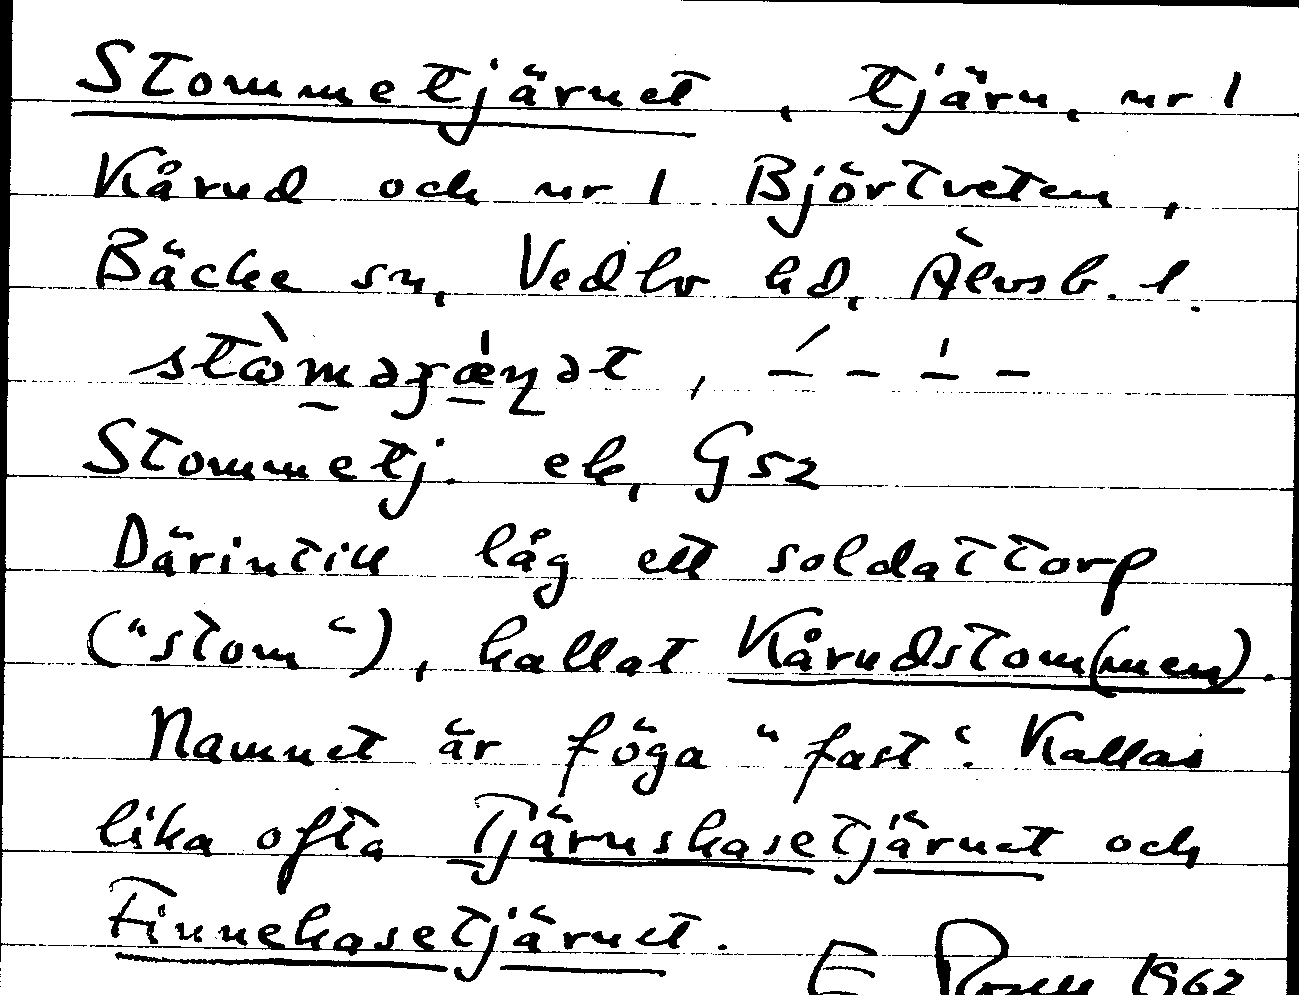 Stommetjärnet, tjärn, nr 1
Kårud och nr 1 Björtveten,
Bäcke sn, Vedbo hd, Älvsb. l.
Stommetj. ek, G52
Därintill låg ett soldattorp
("stom"), kallat Kårudstom(men).
Namnet är föga "fast". Kallas
lika ofta Tjärnskasetjärnet och
Finnekasetjärnet.
E 1962